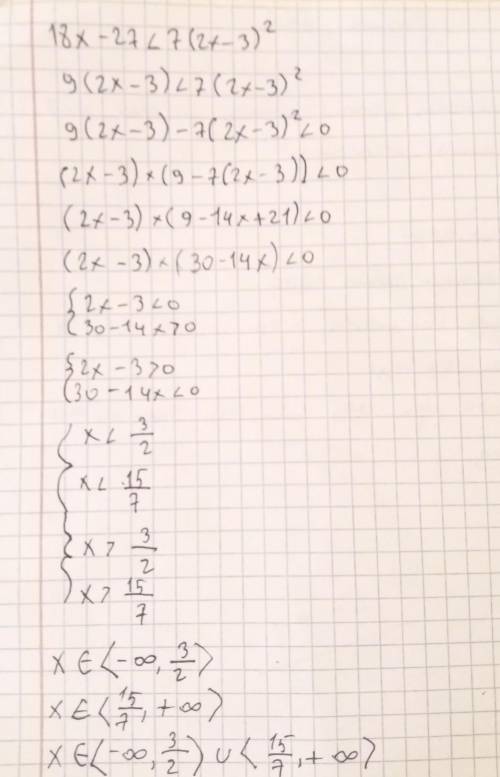 18x - 27 < 7(2x-3)²
9(2x-3) < 7(2x-3)²
9(2x-3) - 7(2x-3)² < 0
(2x-3) × (9-7(2x-3)) < 0
(2x-3) × (9-14x+21) < 0
(2x-3) × (30-14x) < 0
{ 2x-3 < 0
30-14x > 0
{ 2x-3 > 0
30-14x < 0
{ x < 3/2
x < 15/7
x > 3/2
x > 15/7
x ∈ ⟨-∞, 3/2⟩
x ∈ ⟨15/7, +∞⟩
x ∈ ⟨-∞, 3/2⟩ ∪ ⟨15/7, +∞⟩